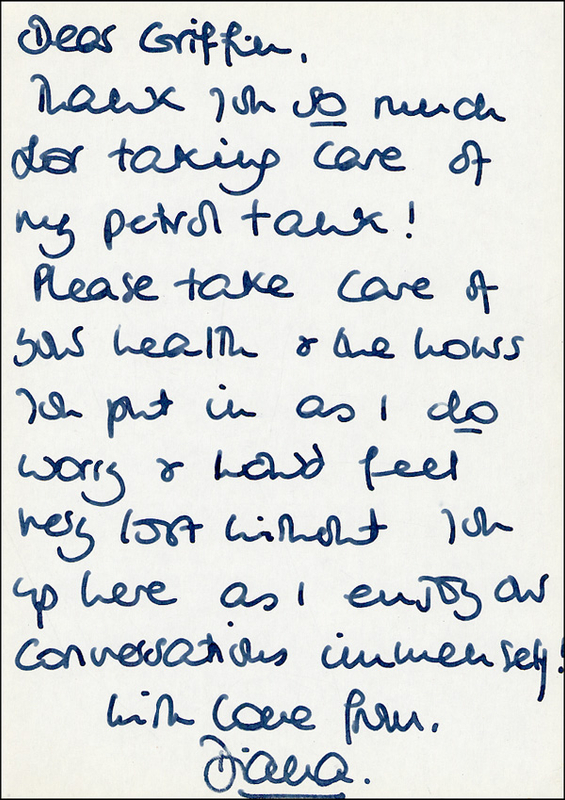 Dear Griffin,
Thank you so much
for taking care of
my petrol tank!
Please take care of
your health & the hours
you put in as I do
worry & would feel
very lost without you
up here as I enjoy our
conversations immensely!
with love from.
Diana.